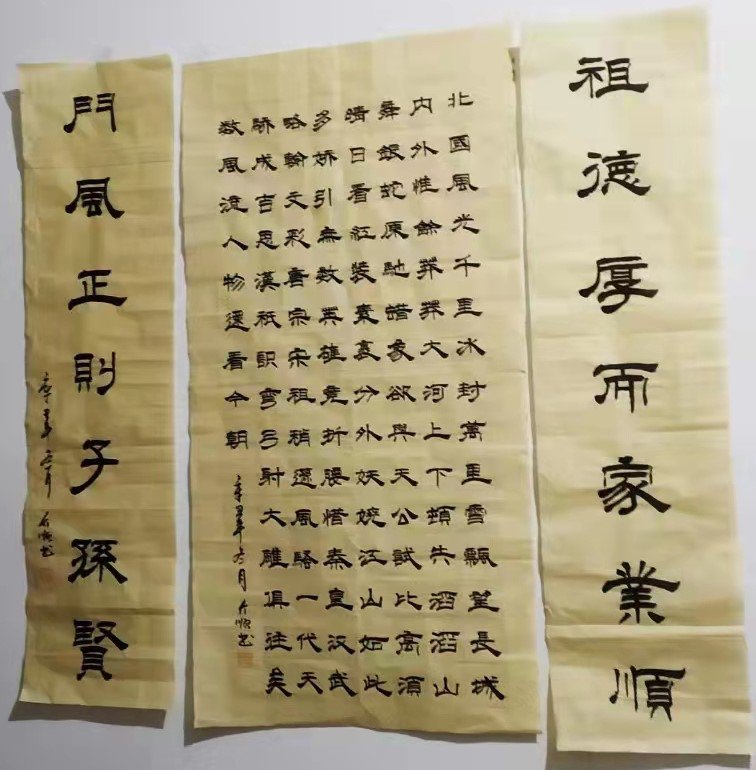 祖德厚而家業順
北國風光千里冰封萬里雪飄望長城
内外惟餘莽莽大河上下頓失滔滔山
舞銀蛇原馳蜡象欲與天公試比高須
晴日看紅裝素裹分外妖娆江山如此
多嬌引無數英雄竟折腰惜秦皇汉武
略輸文彩唐宗宋祖稍遜風騷一代天
驕成吉思漢祇識彎弓射大雕俱往矣
数風流人物還看今朝
辛丑年六月
門風正則子孫賢
辛丑年六月